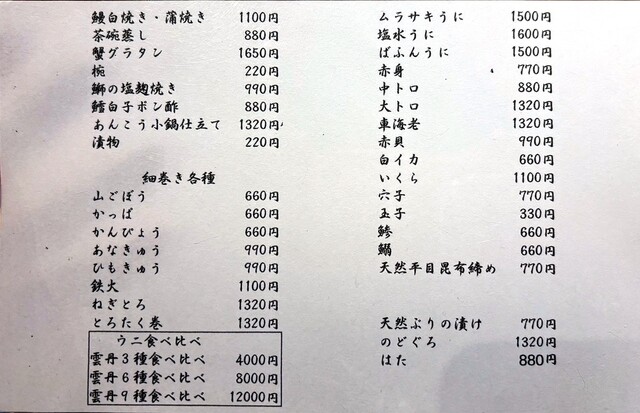 鰻白焼き・蒲焼き 1100円
茶碗蒸し 880円
蟹グラタン 1650円
椀 220円
鰤の塩麹焼き 990円
鱈白子ポン酢 880円
あんこう小鍋仕立て 1320円
漬物 220円
細巻き各種
山ごぼう 660円
かっぱ 660円
かんぴょう 660円
あなきゅう 990円
ひもきゅう 990円
鉄火 1100円
ねぎとろ 1320円
とろたく巻 1320円
ウニ食べ比べ
雲丹3種食べ比べ 4000円
雲丹6種食べ比べ 8000円
雲丹9種食べ比べ 12000円
ムラサキうに 1500円
塩水うに 1600円
ばふんうに 1500円
赤身 770円
中トロ 880円
大トロ 1320円
車海老 1320円
赤貝 990円
白イカ 660円
いくら 1100円
穴子 770円
玉子 330円
鯵 660円
鰯 660円
天然平目昆布締め 770円
天然ぶりの漬け 770円
のどぐろ 1320円
はた 880円